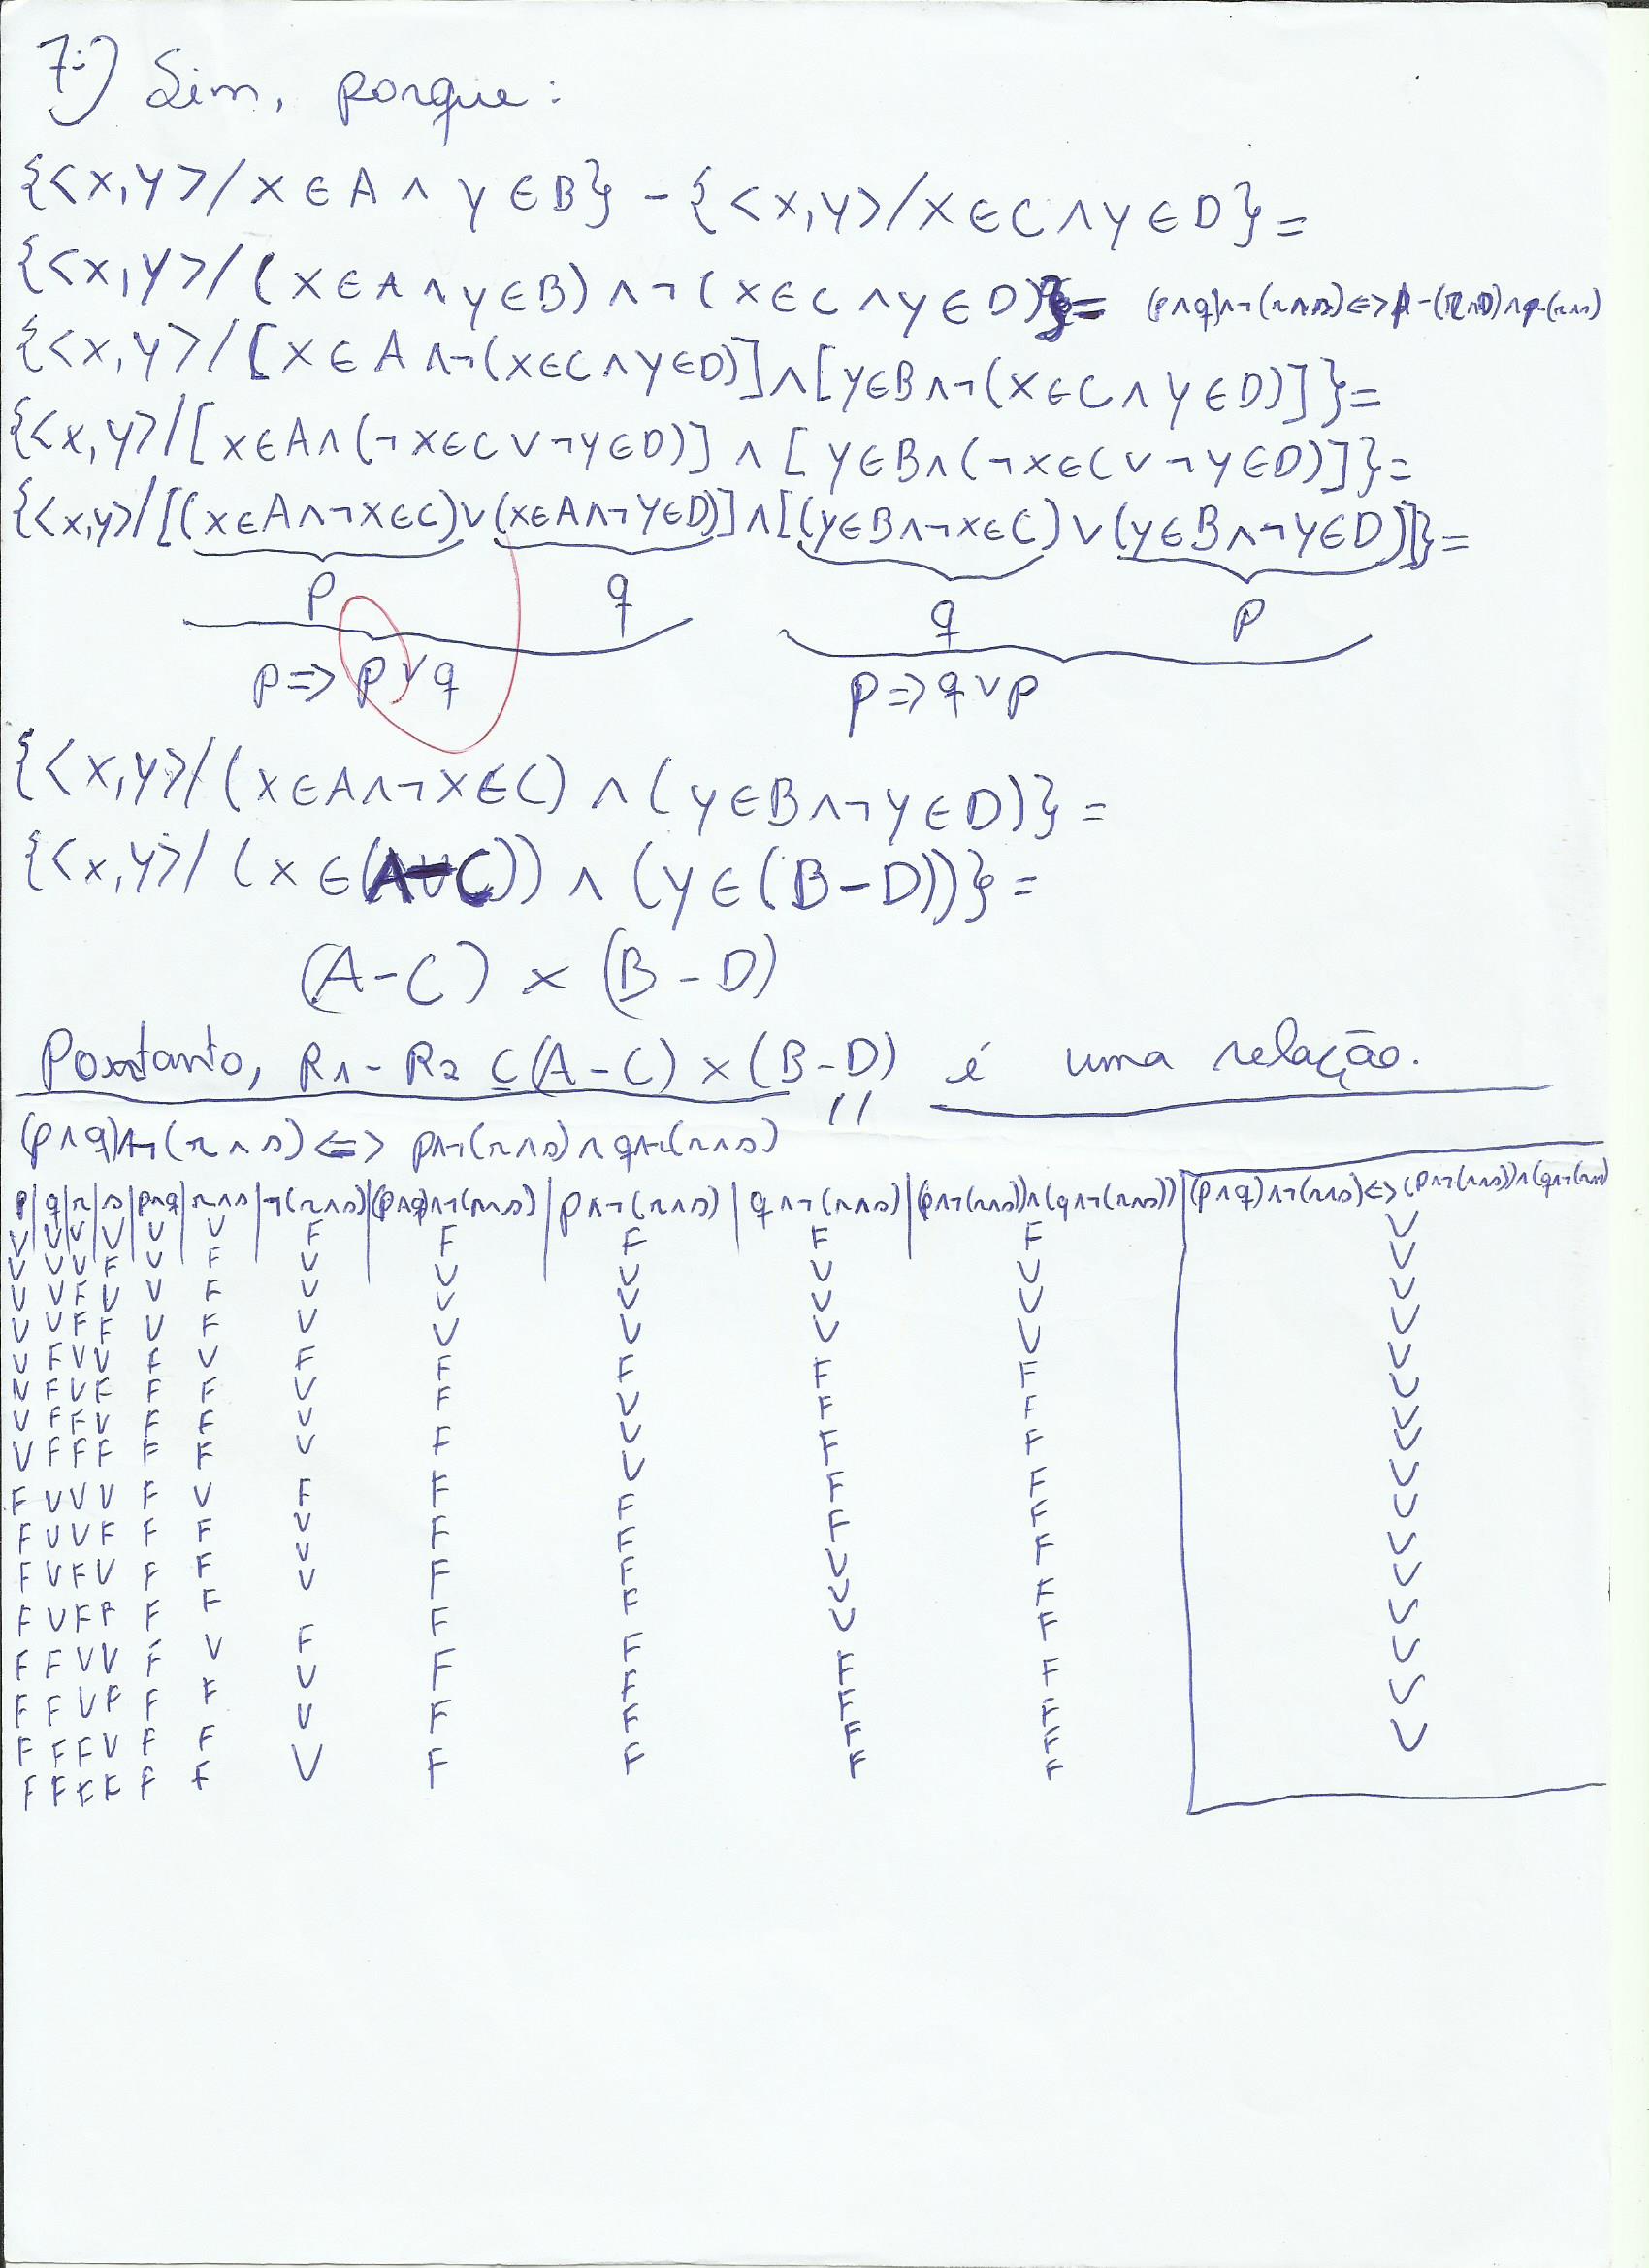 7-) Sim, porque:
{<x,y>/x∈A ∧ y∈B} - {<x,y>/x∈C∧y∈D}=
{<x,y>/(x∈A∧y∈B)∧¬(x∈C∧y∈D)}= (p∧q)∧¬(r∧s)<=>p-(r∧s)∧q-(r∧s)
{<x,y>/[x∈A∧¬(x∈C∧y∈D)]∧[y∈B∧¬(x∈C∧y∈D)]}=
{<x,y>/[x∈A∧(¬x∈C∨¬y∈D)]∧[y∈B∧(¬x∈C∨¬y∈D)]}=
{<x,y>/[(x∈A∧¬x∈C)∨(x∈A∧¬y∈D)]∧[(y∈B∧¬x∈C)∨(y∈B∧¬y∈D)]}=
p q q p
p=>p∨q p=>q∨p
{<x,y>/(x∈A∧¬x∈C)∧(y∈B∧¬y∈D)}=
{<x,y>/(x∈(A-C))∧(y∈(B-D))}=
(A-C)×(B-D)
Portanto, R1-R2⊆(A-C)×(B-D) é uma relação.
(p∧q)∧¬(r∧s)<=>p∧¬(r∧s)∧q∧¬(r∧s)
p|q|r|s|p∧q|r∧s|¬(r∧s)|(p∧q)∧¬(r∧s)|p∧¬(r∧s)|q∧¬(r∧s)|(p∧¬(r∧s))∧(q∧¬(r∧s))|(p∧q)∧¬(r∧s)<=>(p∧¬(r∧s))∧(q∧¬(r∧s))
V V V V V V F F F F F V
V V V F V F V V V V V V
V V F V V F V V V V V V
V V F F V F V V V V V V
V F V V F V F F F F F V
V F V F F F V F V F F V
V F F V F F V V F F V
V F F F F F V F V F F V
F V V V F V F F F F F V
F V V F F F V F F F F V
F V F V F F V F F V F V
F V F F F F V F F V F V
F F V V F V F F F V F V
F F V F F F V F F F F V
F F F V F F V F F F F V
F F F F F F V F F F F V